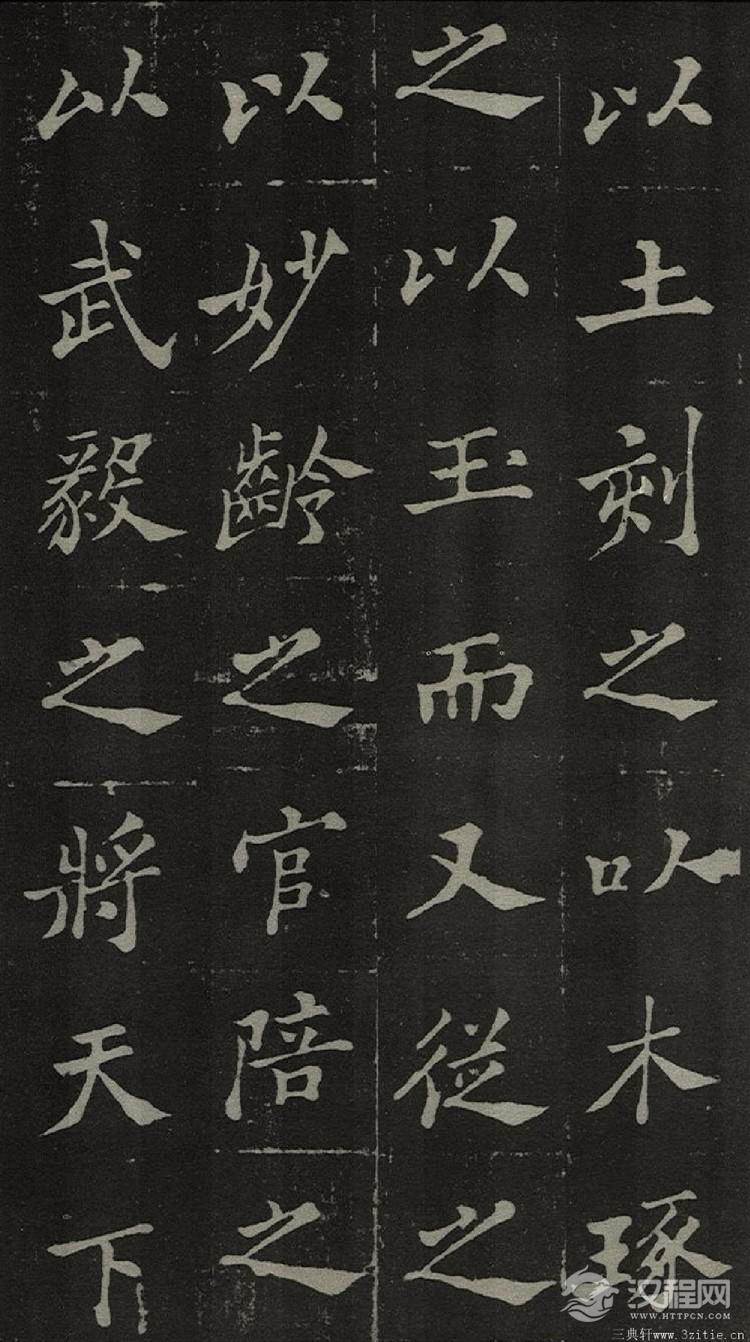 以土刻之以木琢
之以玉而又從之
以妙齡之官陪之
以武毅之將天下
汉程网
WWW.HTTPCN.COM
三典轩www.3zitie.cn